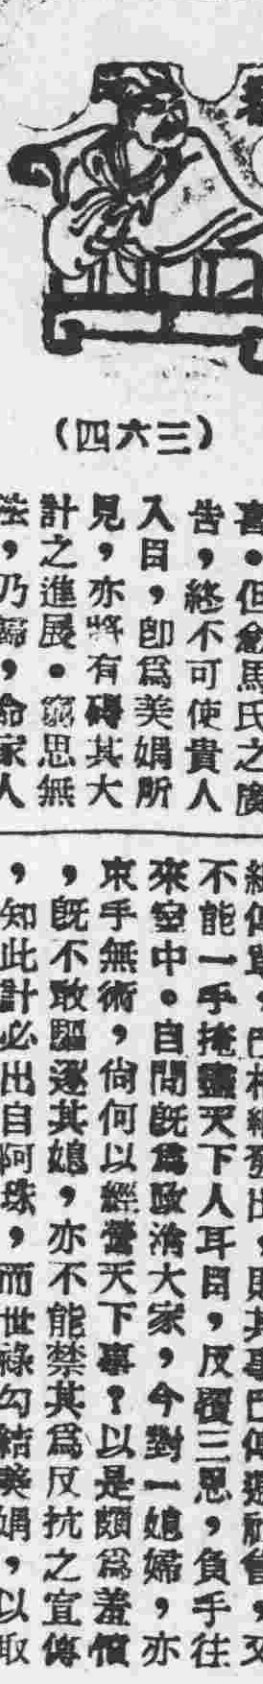 （四六三）
喜。但念馬氏之廣
告，終不可使貴人
入目，卽爲美娟所
見，亦將有礙其大
計之進展。竊思無
法，乃歸，命家人
不能一手掩盡天下人耳目，反覆三思，負手往
來室中。自問旣爲政治大家，今對一媳婦，亦
束手無術，尙何以經營天下事？以是頗爲羞憤
，旣不敢驅逐其媳，亦不能禁其爲反抗之宣傳
，知此計必出自阿珠，而世祿勾結美娟，以取